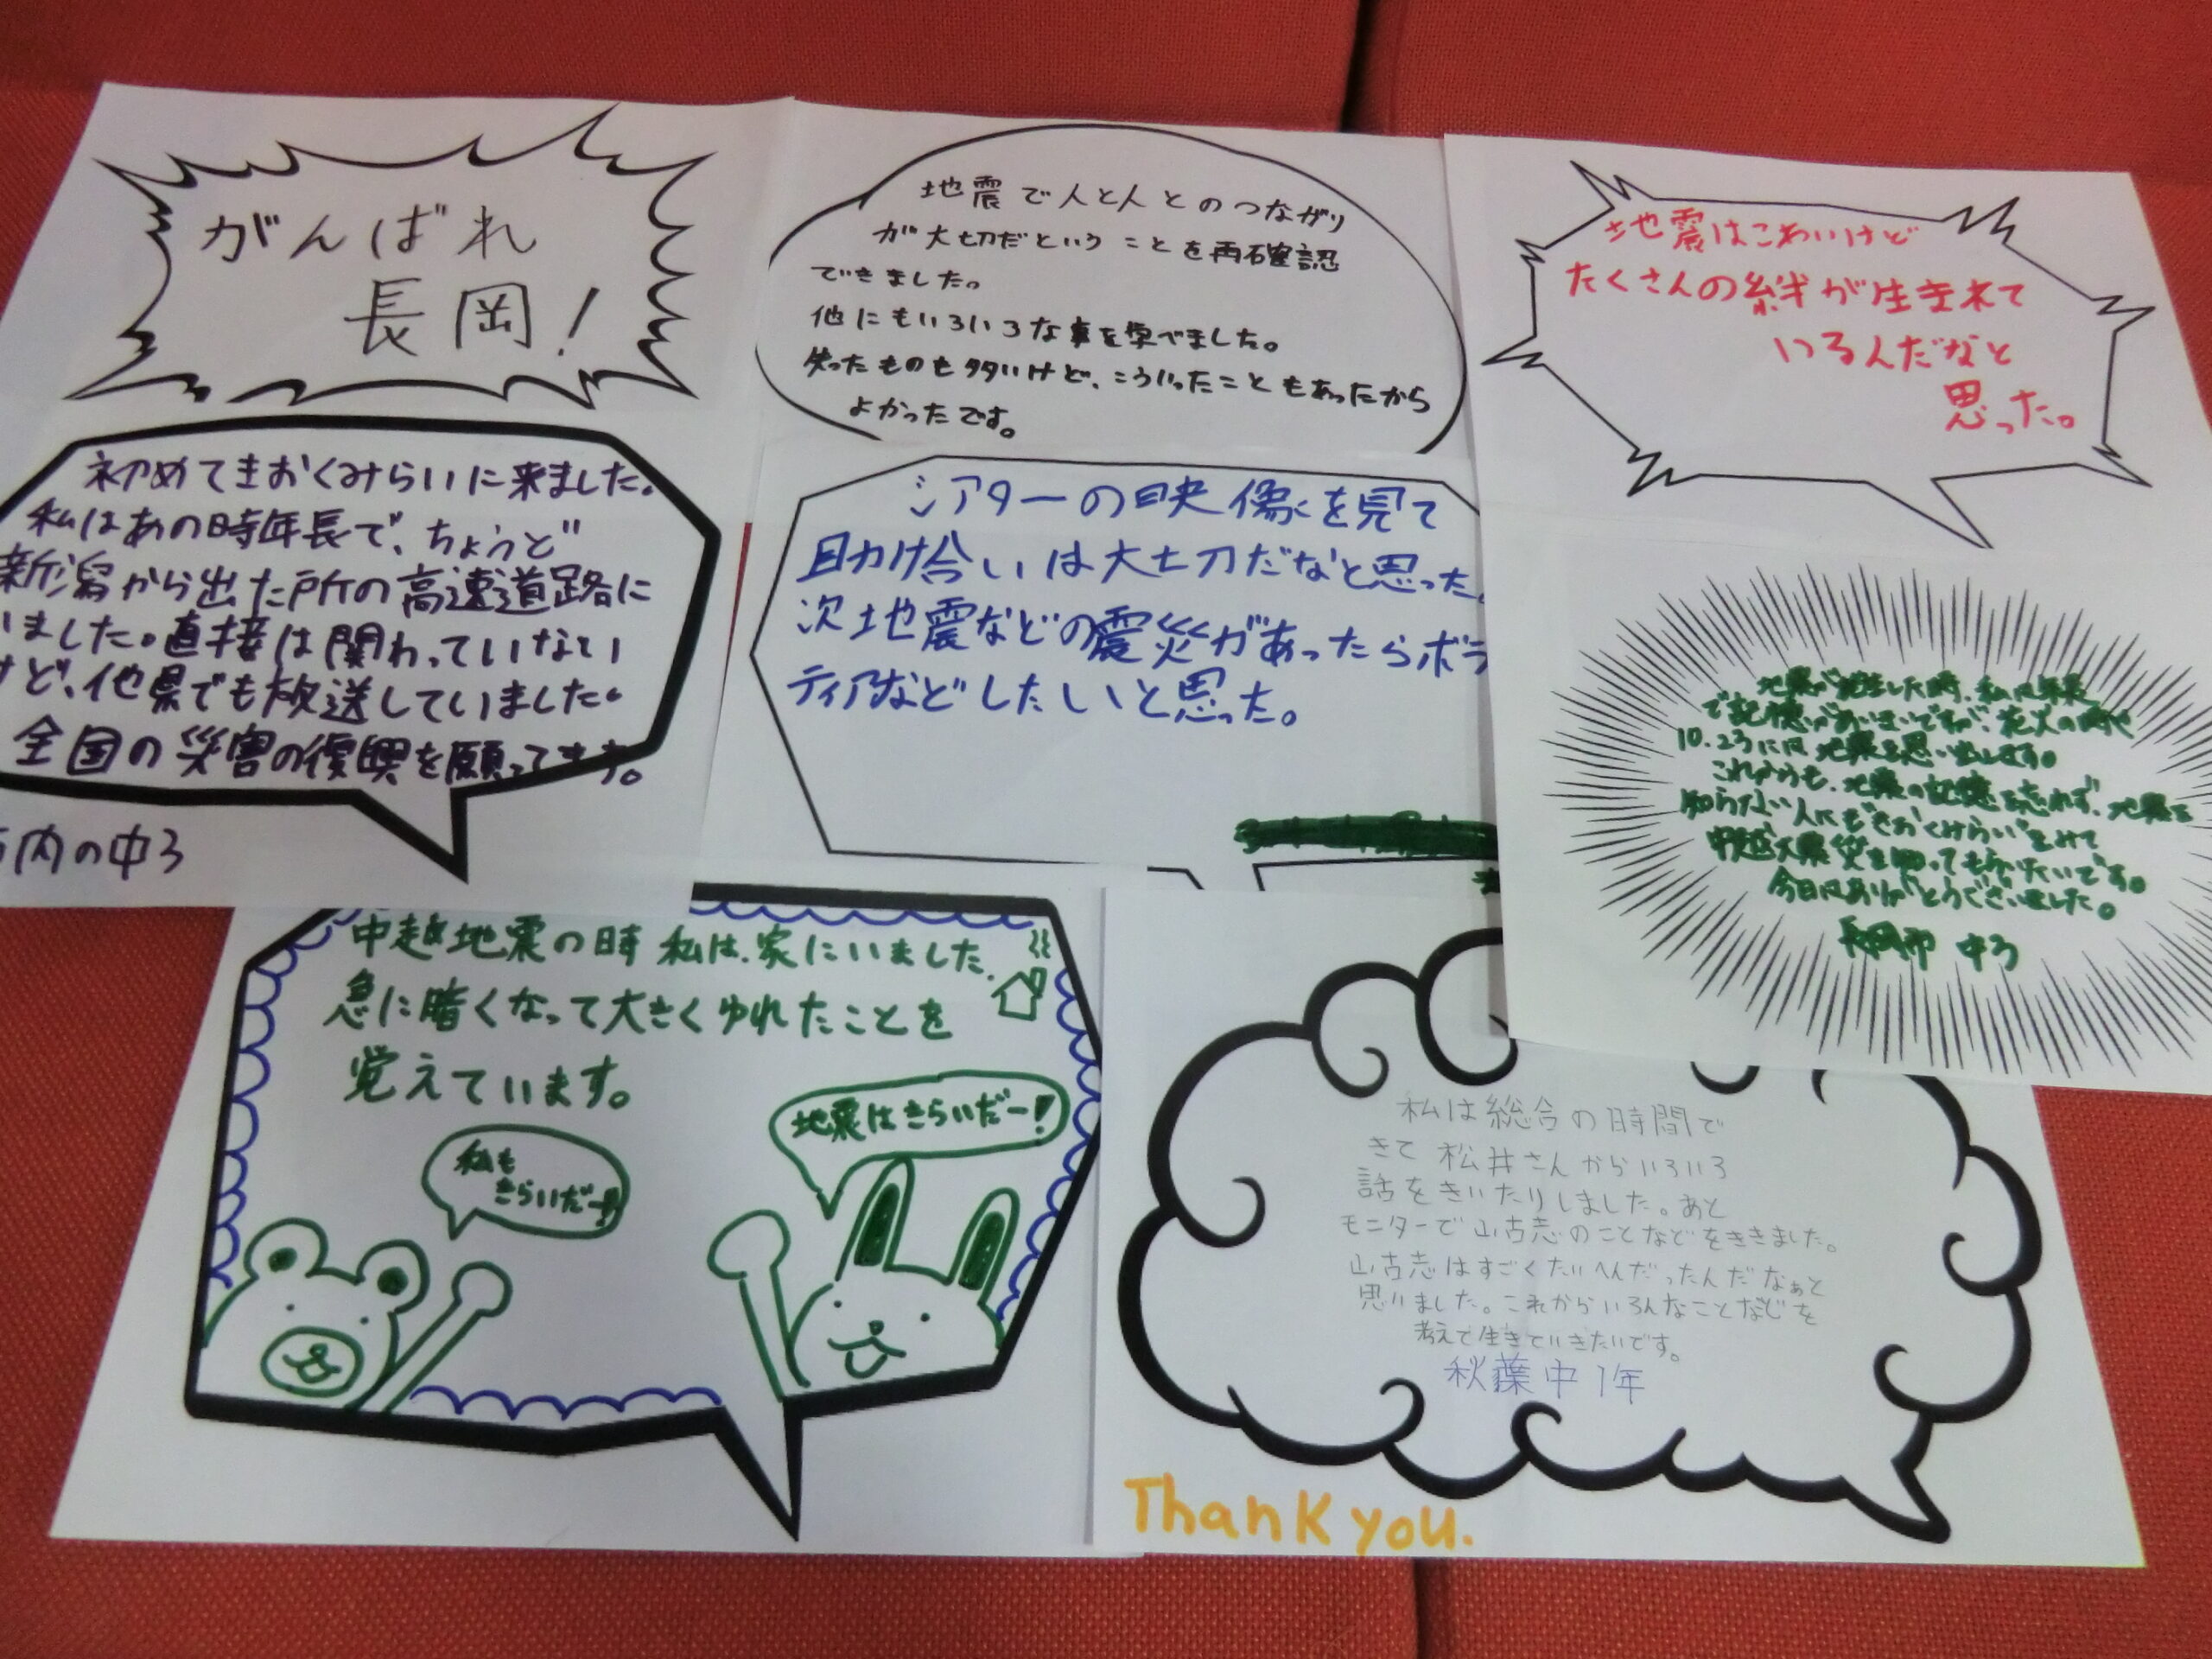 がんばれ
長岡!
地震で人と人とのつながり
が大切だということを再確認
できました。
他にもいろいろな事を学べました。
失ったものも多いけど、こういったこともあったから
よかったです。
地震はこわいけど
たくさんの絆が生まれて
いるんだなと
思った。
初めてきおくみらいに来ました。
私はあの時年長で、ちょうど
新潟から出た所の高速道路に
いました。直接は関わっていない
けど、他県でも放送していました。
全国の災害の復興を願ってます。
内の中3
シアターの映像を見て
助け合いは大切だなと思った。
次地震などの震災があったらボラ
ティアなどしたいと思った。
地震が発生した時、私は年長
で記憶があいまいですが、花火の時や
10.23には地震を思い出します。
これからも、地震の記憶を忘れず、地震を
知らない人にも"きおくみらい"をみて
中越大震災を知ってもらいたいです。
今日はありがとうございました。
長岡市 中3
中越地震の時 私は、家にいました、
急に暗くなって大きくゆれたことを
覚えています。
私も
きらいだー!!
地震はきらいだー!
私は総合の時間で
きて 松井さんからいろいろ
話をきいたりしました。あと
モニターで山古志のことなどをききました。
山古志はすごくたいへんだったんだなぁと
思いました。これからいろんなことなどを
考えて生きていきたいです。
秋葉中1年
Thank you.